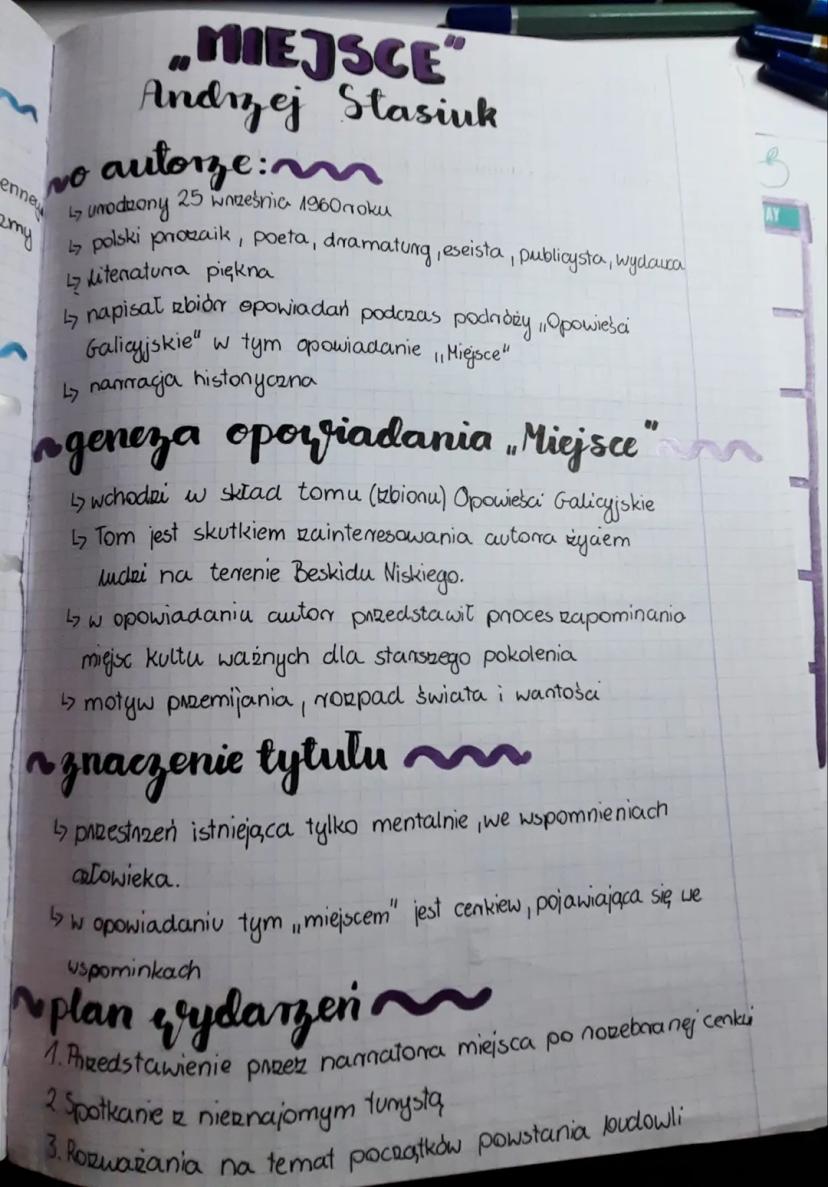 „MIEJSCE"
Andrzej Stasiuk
o autorze:
↳ urodzony 25 września 1960 roku
↳ polski prozaik, poeta, dramaturg, eseista, publicysta, wydawca
↳ literatura piękna
↳ napisał zbiór opowiadań podczas podróży „Opowieści
Galicyjskie" w tym opowiadanie „Miejsce"
↳ narracja historyczna
geneza opowiadania „Miejsce"
↳ wchodzi w skład tomu (zbioru) Opowieści Galicyjskie
↳ Tom jest skutkiem zainteresowania autora życiem
ludzi na terenie Beskidu Niskiego.
↳ w opowiadaniu autor przedstawił proces zapominania
miejsc kultu ważnych dla starszego pokolenia
↳ motyw przemijania, rozpad świata i wartości
znaczenie tytułu
↳ przestrzeń istniejąca tylko mentalnie, we wspomnieniach
człowieka.
↳ w opowiadaniu tym „miejscem" jest cerkiew, pojawiająca się we
wspominkach
plan wydarzeń
1. Przedstawienie przez narratora miejsca po rozebranej cerkwi
2 Spotkanie z nieznajomym turystą
3. Rozważania na temat początków powstania budowli
enne
zmy
B
AY